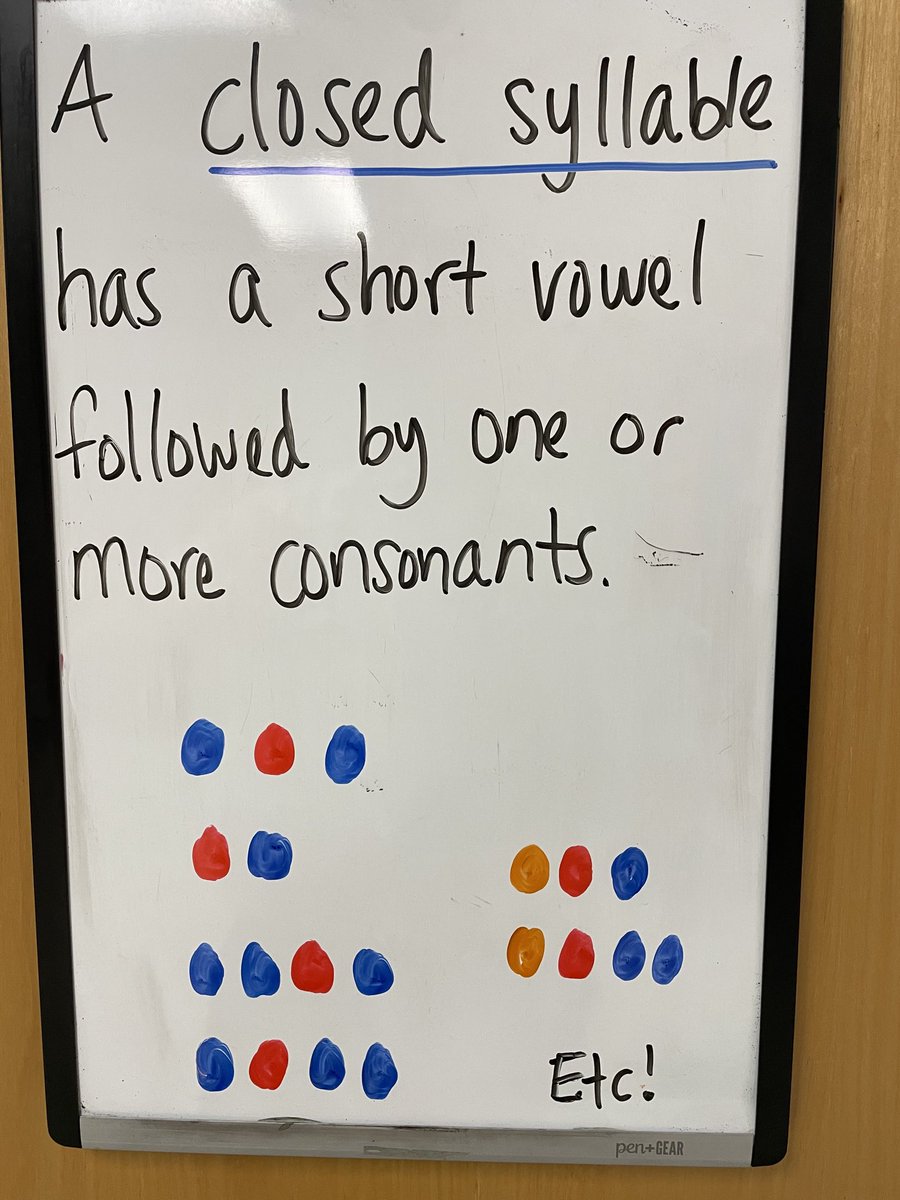 A closed syllable
has a short vowel
followed by one or
more consonants.
Etc!
pen+GEAR